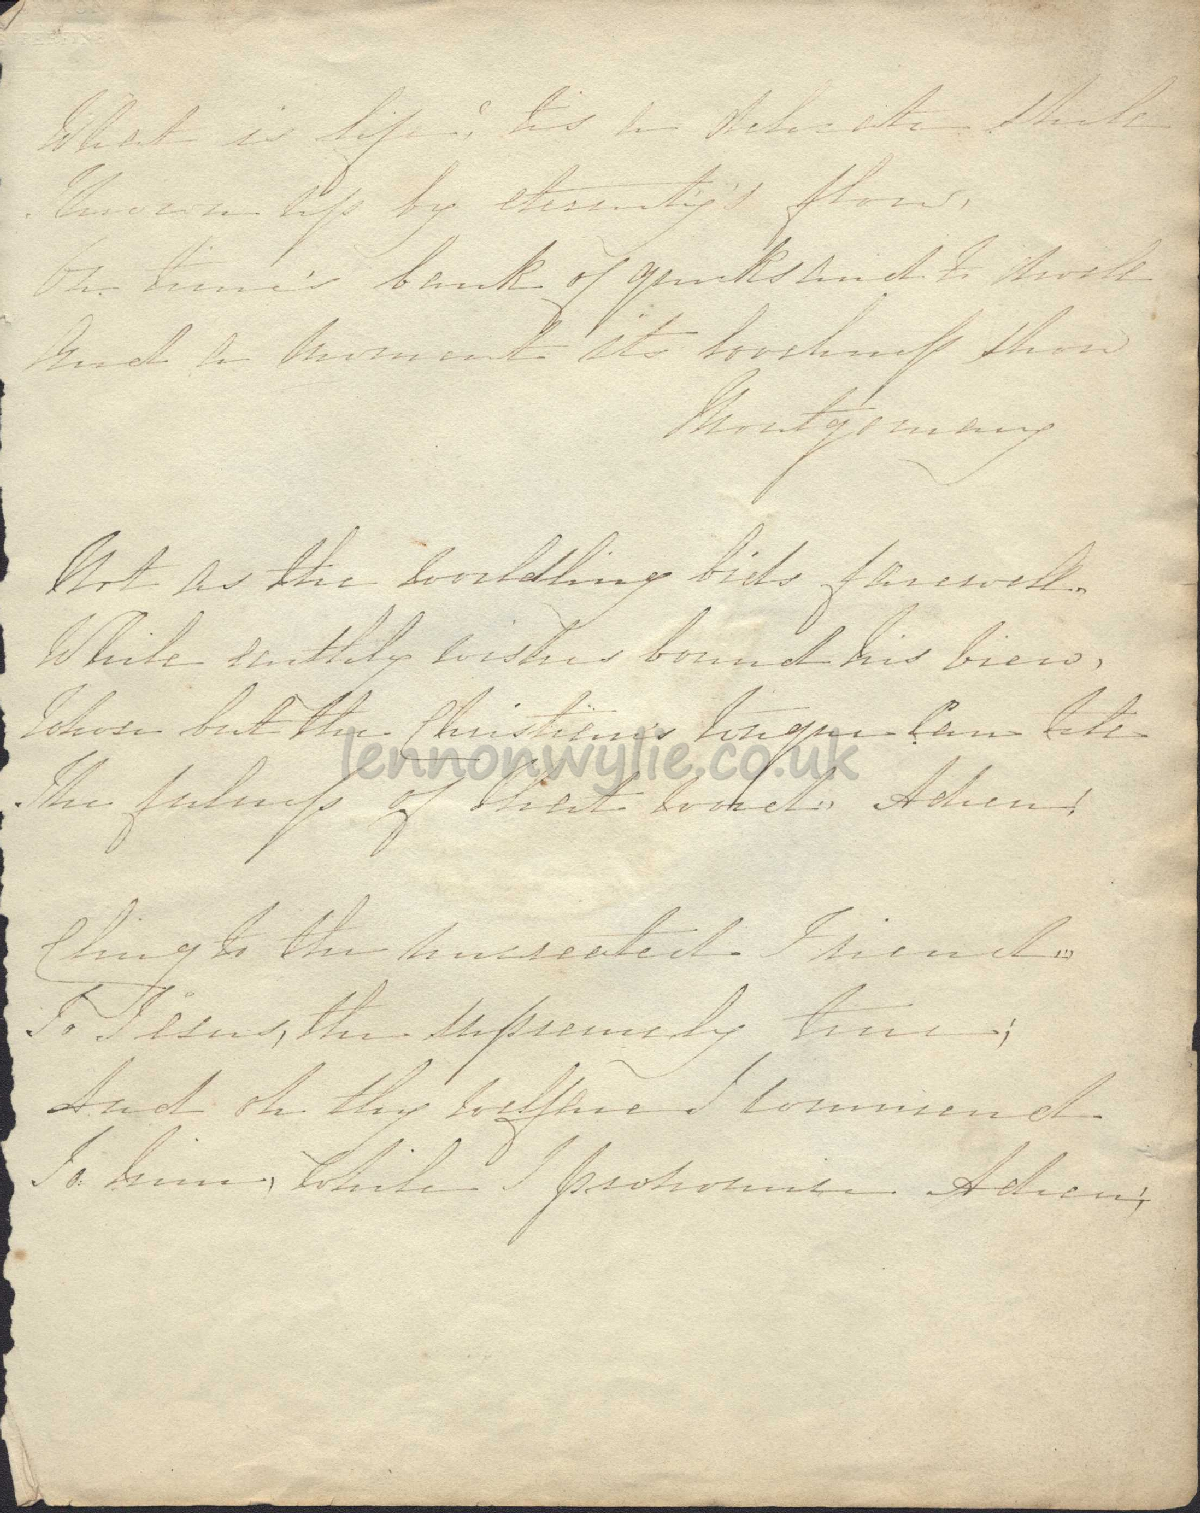 What is life? tis a delicate shell
Thrown up by eternity's flow,
On time's bank of quicksand to dwell
And a moment its loveliness show
Montgomery
Not as the worldling bids farewell.
While earthly wishes bound his view,
Whose but the Christian's tongue can tell
The fulness of that word. Adieu!
lennonwylie.co.uk
Cling to the uncreated Friend
To Jesus, the supremely true;
And oh thy welfare I commend
To him, while I pronounce Adieu;